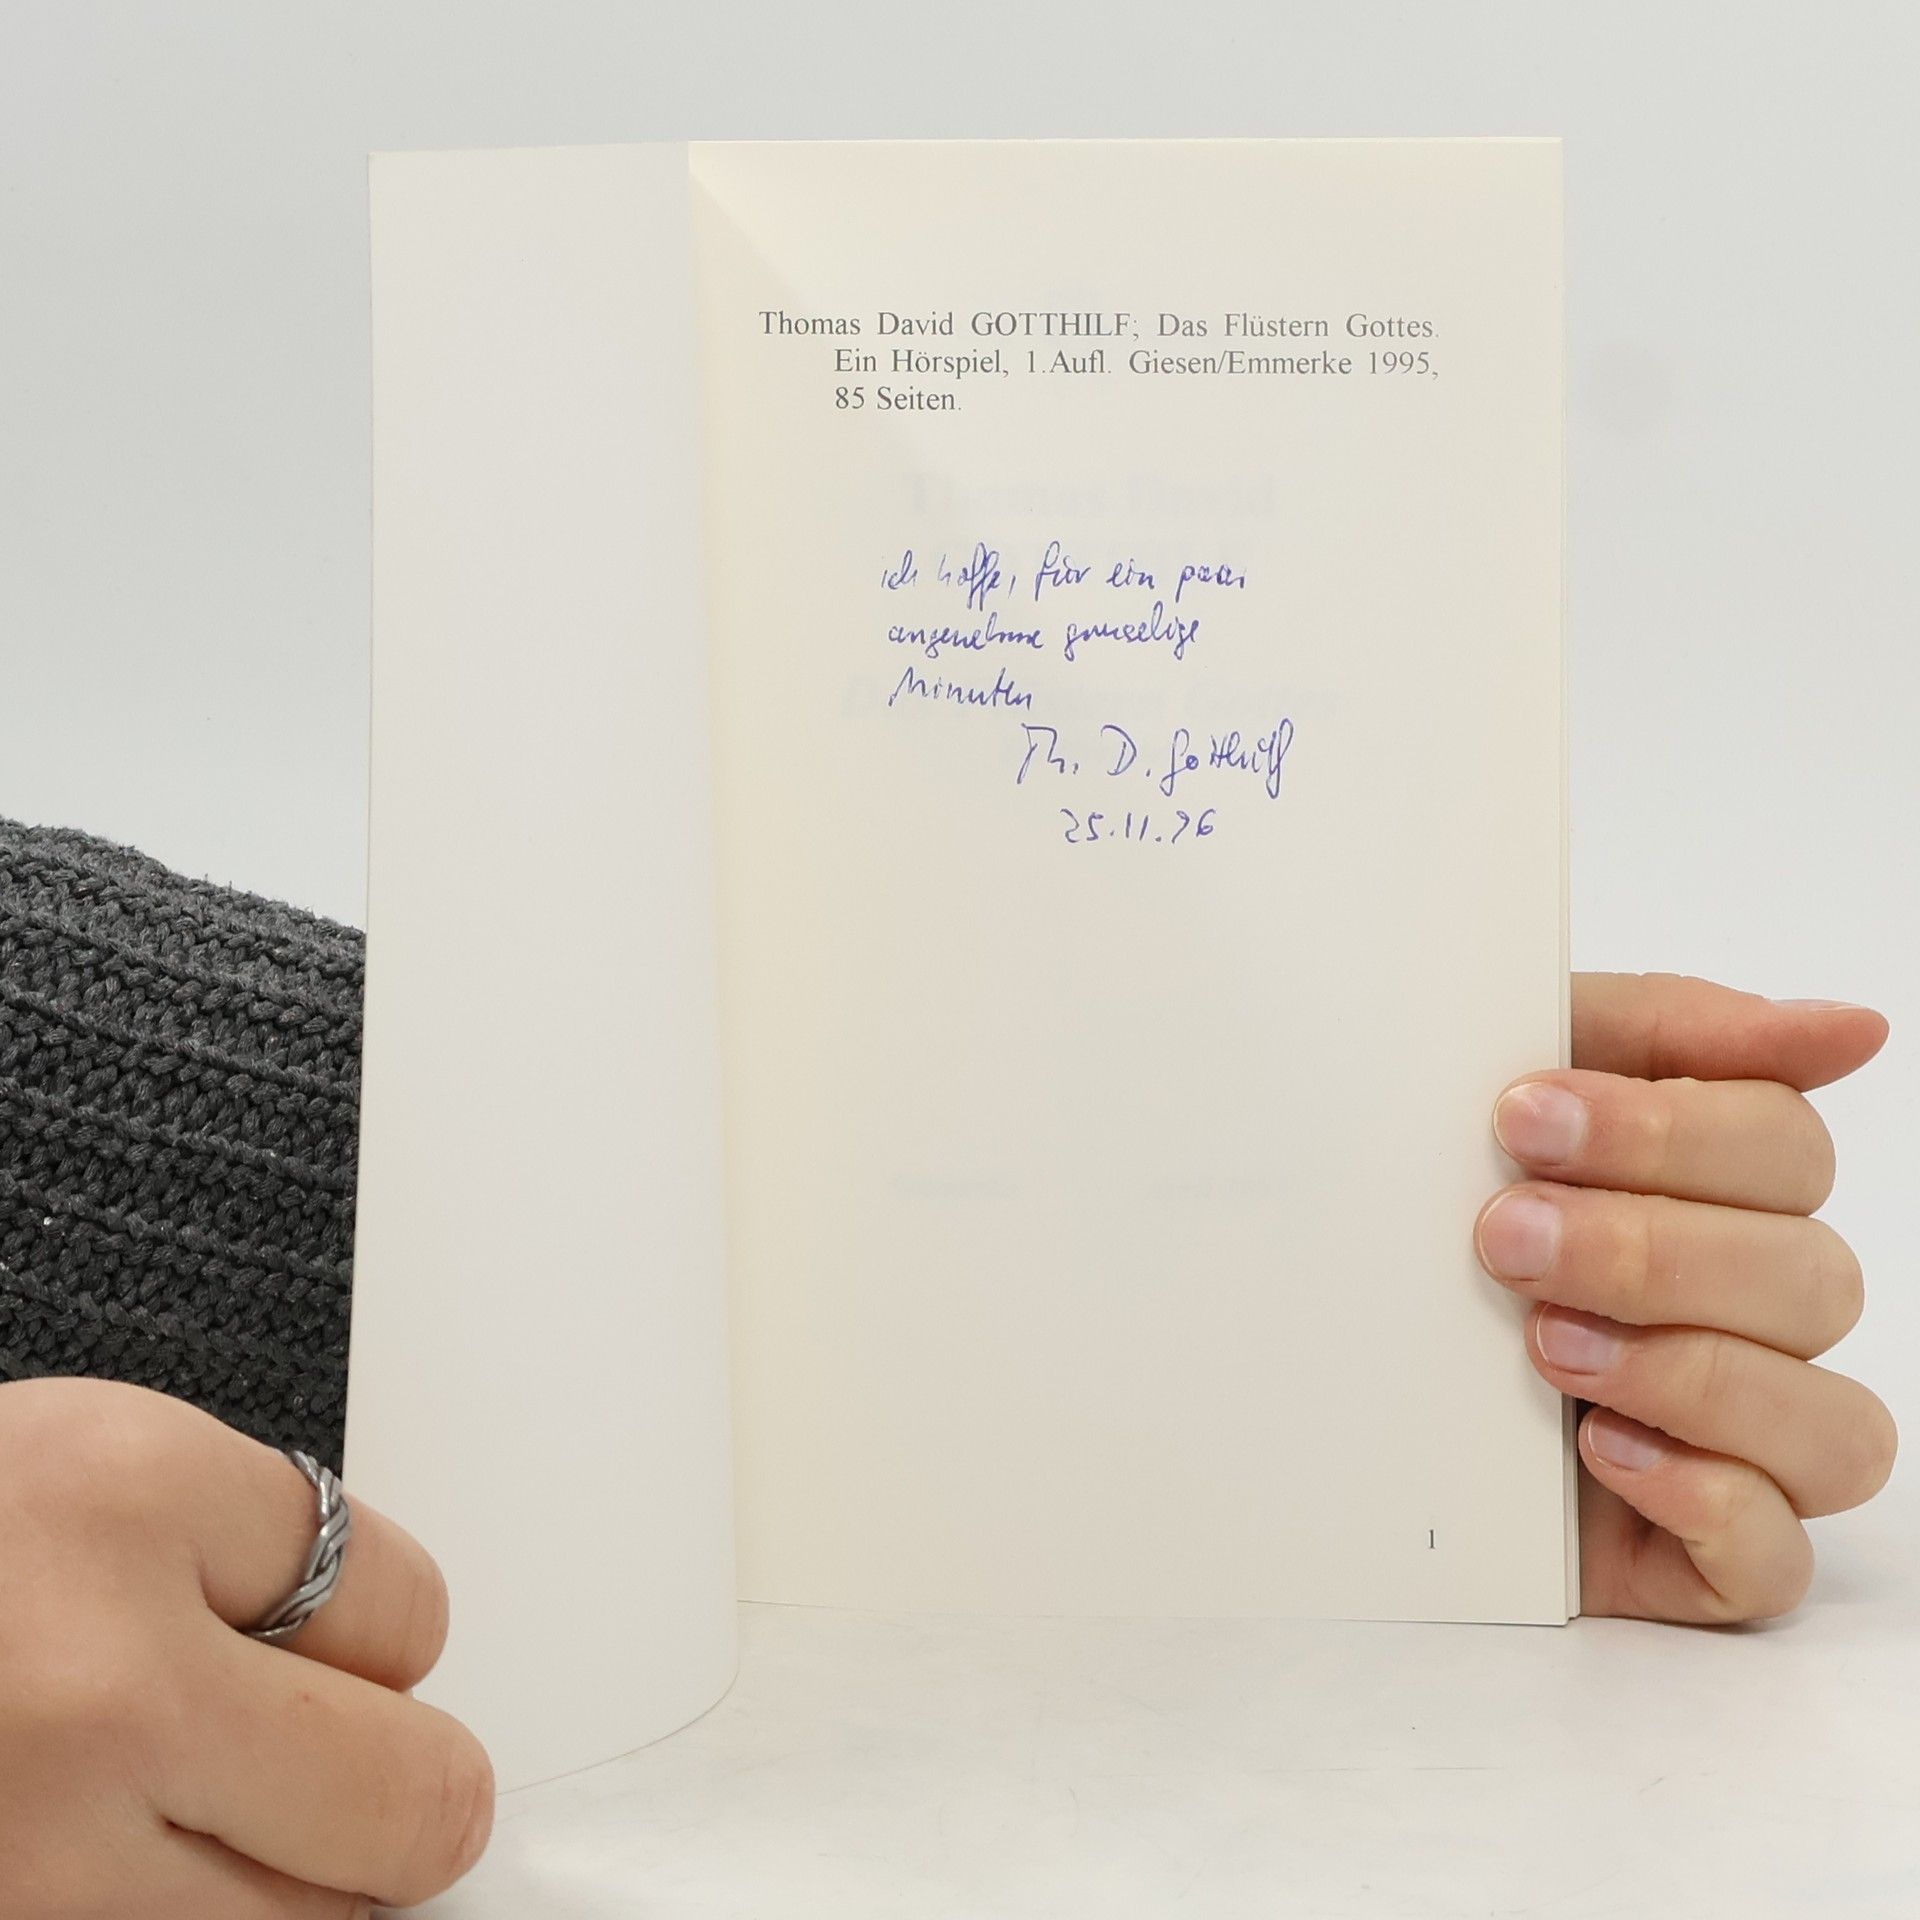 Thomas David GOTTHILF; Das Flüstern Gottes.
Ein Hörspiel, 1.Aufl. Giesen/Emmerke 1995,
85 Seiten.
ich hoffe, für ein paar
angenehme gruselige
Minuten
Th. D. Gotthilf
25.11.96
1